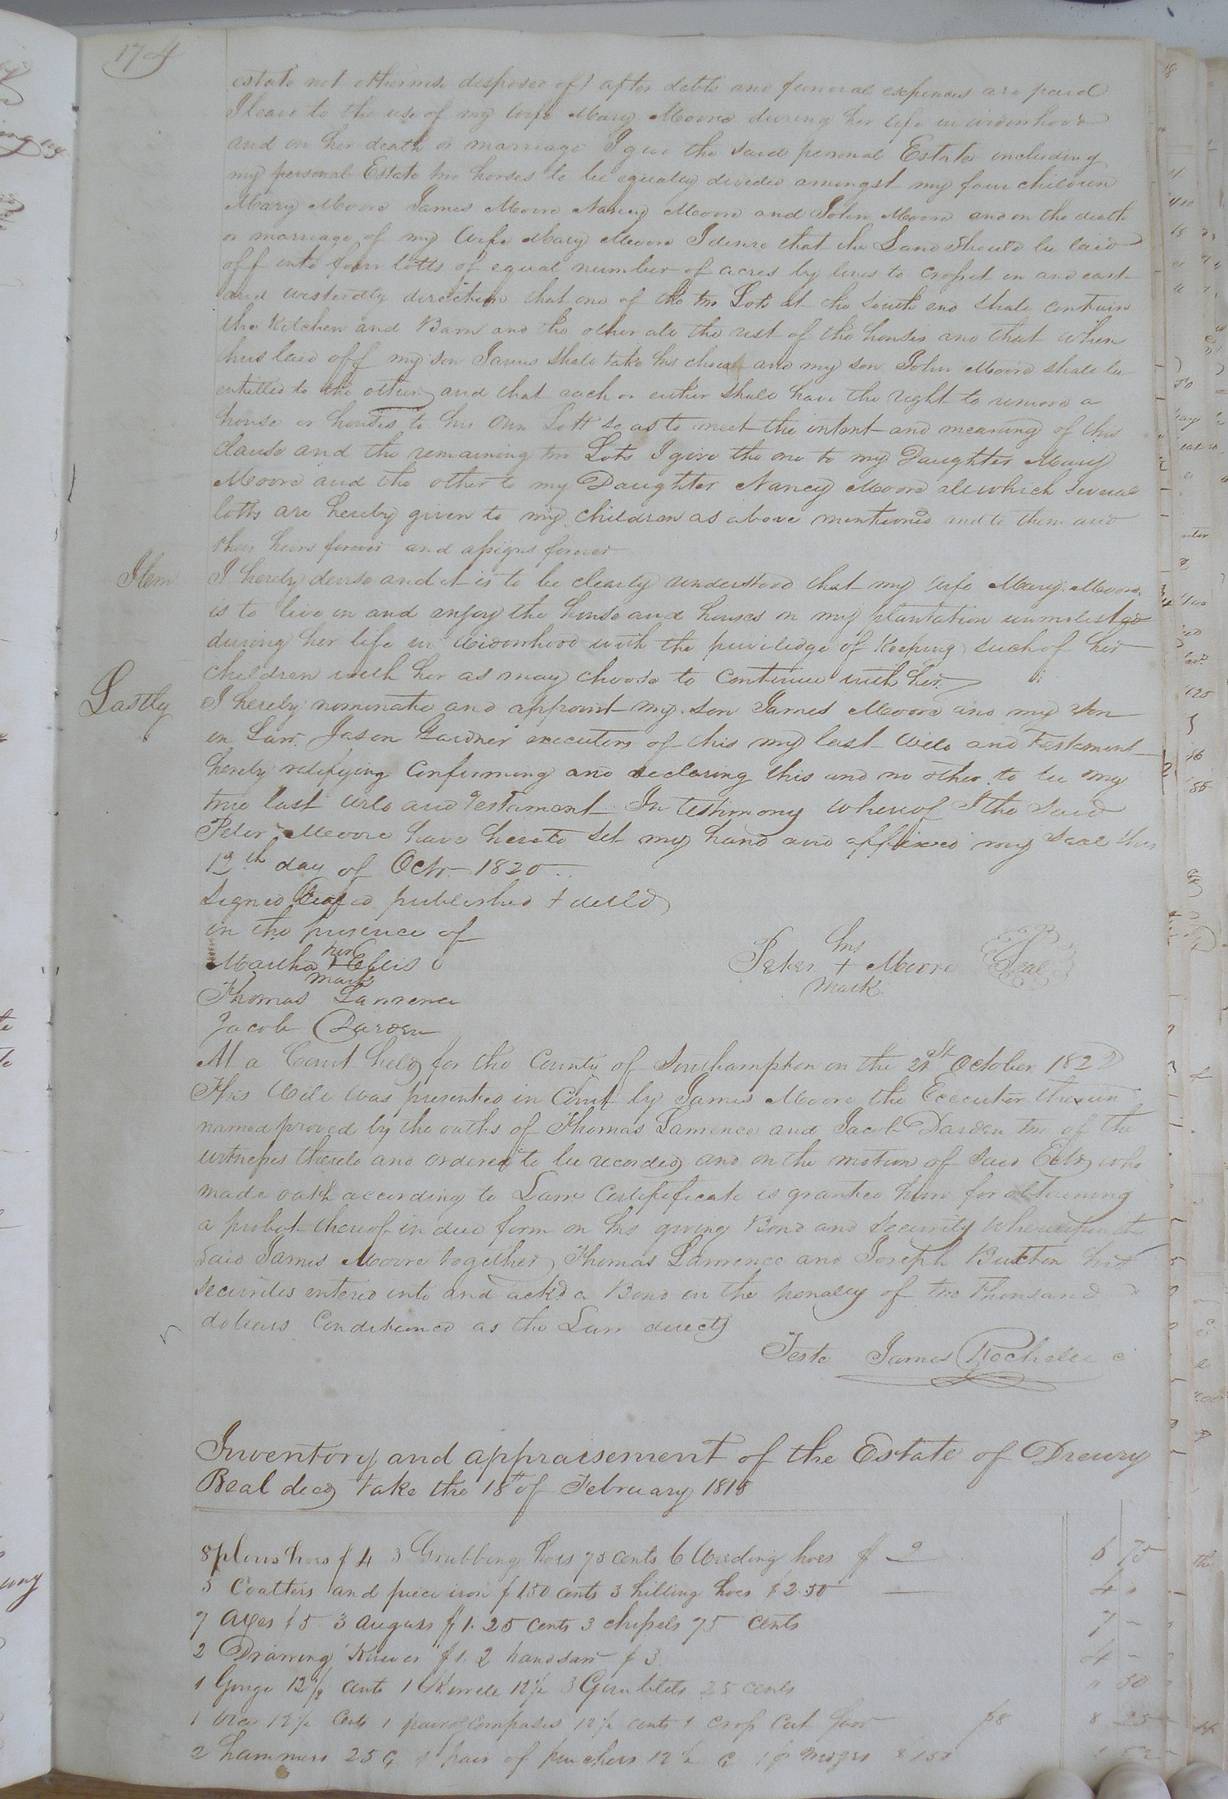 174
estate not otherwise disposed of) after debts and funeral expences are paid
I leave to the use of my wife Mary Moore during her life or widowhood
and on her death or marriage I give the said personal Estate including
my personal Estate two horses to be equally divided amongst my four children
Mary Moore James Moore Nancy Moore and John Moore and on the death
or marriage of my Wife Mary Moore I desire that the Land should be laid
off into four lotts of equal number of acres by lines to Crossed in an east
and westwardly direction that one of the two Lots at the South end shall contain
the Kitchen and Barn and the other all the rest of the houses and that when
thus laid off my son James shall take his choice and my son John Moore shall be
entitled to the other and that each or either shall have the right to remove a
house or houses to his own Lott so as to meet the intent and meaning of this
Clause and the remaining two Lots I give the one to my Daughter Mary
Moore and the other to my Daughter Nancy Moore all which several
lotts are hereby given to my Children as above mentioned and to them and
their heirs forever and assigns forever
Item I hereby devise and it is to be clearly understood that my wife Mary Moore
is to live in and enjoy the house and houses on my plantation unmolested
during her life or Widowhood with the priviledge of Keeping such of her
children with her as may choose to continue with her
Lastly I hereby nominate and appoint my son James Moore and my son
in Law Jason Gardner executors of this my last Will and Testament
hereby ratifying Confirming and declaring this and no other to be my
true last Will and Testament In testimony whereof I the said
Peter Moore have hereto set my hand and affixed my Seal this
12th day of Octr 1820
Signed Sealed published & deld
in the presence of
Martha her + Ellis mark
Peter his + Moore mark Seal
Thomas Lawrence
Jacob Darden
At a Court held for the County of Southampton on the 21st October 1822
This Will was presented in Court by James Moore the Executor therein
named proved by the oaths of Thomas Lawrence and Jacob Darden two of the
witnesses thereto and ordered to be recorded and on the motion of said Exor who
made oath according to Law Certificate is granted him for obtaining
a probat thereof in due form on his giving Bond and Security Whereupon the
said James Moore together Thomas Lawrence and Joseph his
securities entered into and ackd a Bond in the penalty of two Thousand
dollars Conditioned as the Law directs
Teste James Rochelle C
Inventory and appraisement of the Estate of Drewry
Beal decd Take the 18th of February 1818
8 plow hoes $4 3 Grubbing hoes 75 cents 6 Weeding hoes $2 6 75
5 Coalters and piece iron $1.50 cents 3 hilling hoes $2.50 4
7 axes $5 3 augurs $1.25 cents 3 chissels 75 cents 7
2 Drawing Knives $1 2 handsaw $3 4
1 Gouge 12½ cents 1 12½ 3 Gimblets 25 cents 50
1 12½ Cents 1 pair of Compasses 12½ cents 1 Crop Cut Saw $8 8 25
2 hammers 25 C 1 pair of pinchers 12½ C $1.50